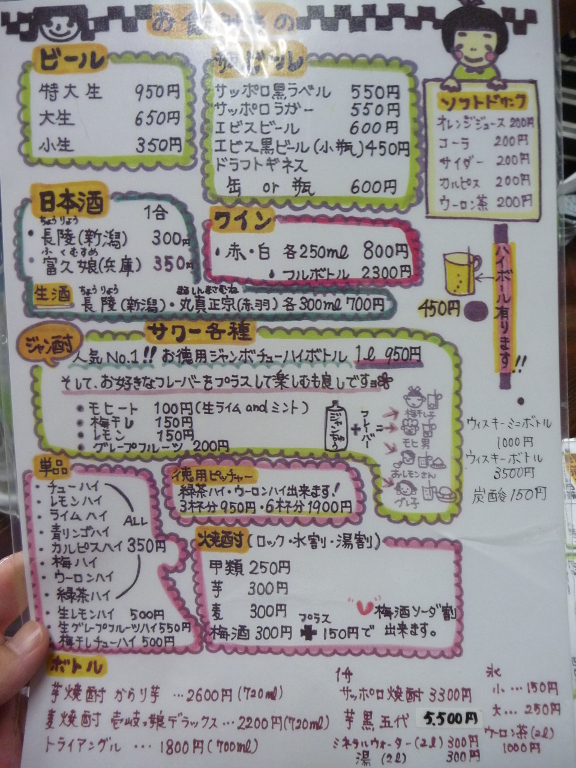 お飲みもの
ビール
特大生 950円
大生 650円
小生 350円
サッポロ黒ラベル 550円
サッポロラガー 550円
エビスビール 600円
エビス黒ビール(小瓶)450円
ドラフトギネス
缶 or 瓶 600円
ソフトドリンク
オレンジジュース 200円
コーラ 200円
サイダー 200円
カルピス 200円
ウーロン茶 200円
日本酒 1合
ちょうりょう
・長陵(新潟) 300円
ふくむすめ
・富久娘(兵庫) 350円
ワイン
・赤・白 各250ml 800円
・フルボトル 2300円
生酒 長陵(新潟)・丸真正宗(赤羽)各300ml 700円
ちょうりょう まるしんまさむね
ハイボール有ります!!
450円
サワー各種
ジャン酎
人気No.1!! お徳用ジャンボチューハイボトル 1ℓ 950円
そして、お好きなフレーバーをプラスして楽しむも良しです
・モヒート 100円(生ライム and ミント)
・梅干し 150円
・レモン 150円
・グレープフルーツ 200円
じゃんちゅう
+
フレーバー
=
梅干し子
モヒ男
おレモンさん
グレ子
ウィスキーミニボトル
1000円
ウィスキーボトル
3500円
炭酸 150円
単品
・チューハイ
・レモンハイ
・ライムハイ
・青リンゴハイ
・カルピスハイ
・梅ハイ
・ウーロンハイ
・緑茶ハイ
ALL
350円
・生レモンハイ 500円
・生グレープフルーツハイ 550円
・梅干しチューハイ 500円
徳用ピッチャー
緑茶ハイ・ウーロンハイ出来ます!
3杯分 950円・6杯分 1900円
焼酎(ロック・水割・湯割)
甲類 250円
芋 300円
麦 300円
梅酒 300円 プラス + 150円で 梅酒ソーダ割
出来ます。
ボトル
芋焼酎 からり芋 …2600円(720ml)
麦焼酎 壱岐っ娘デラックス…2200円(720ml)
トライアングル …1800円(700ml)
サッポロ焼酎 3300円
芋 黒五代 5,500円
ミネラルウォーター(2ℓ) 300円
湯(2ℓ) 300円
氷
小…150円
大…250円
ウーロン茶(2ℓ)
1000円